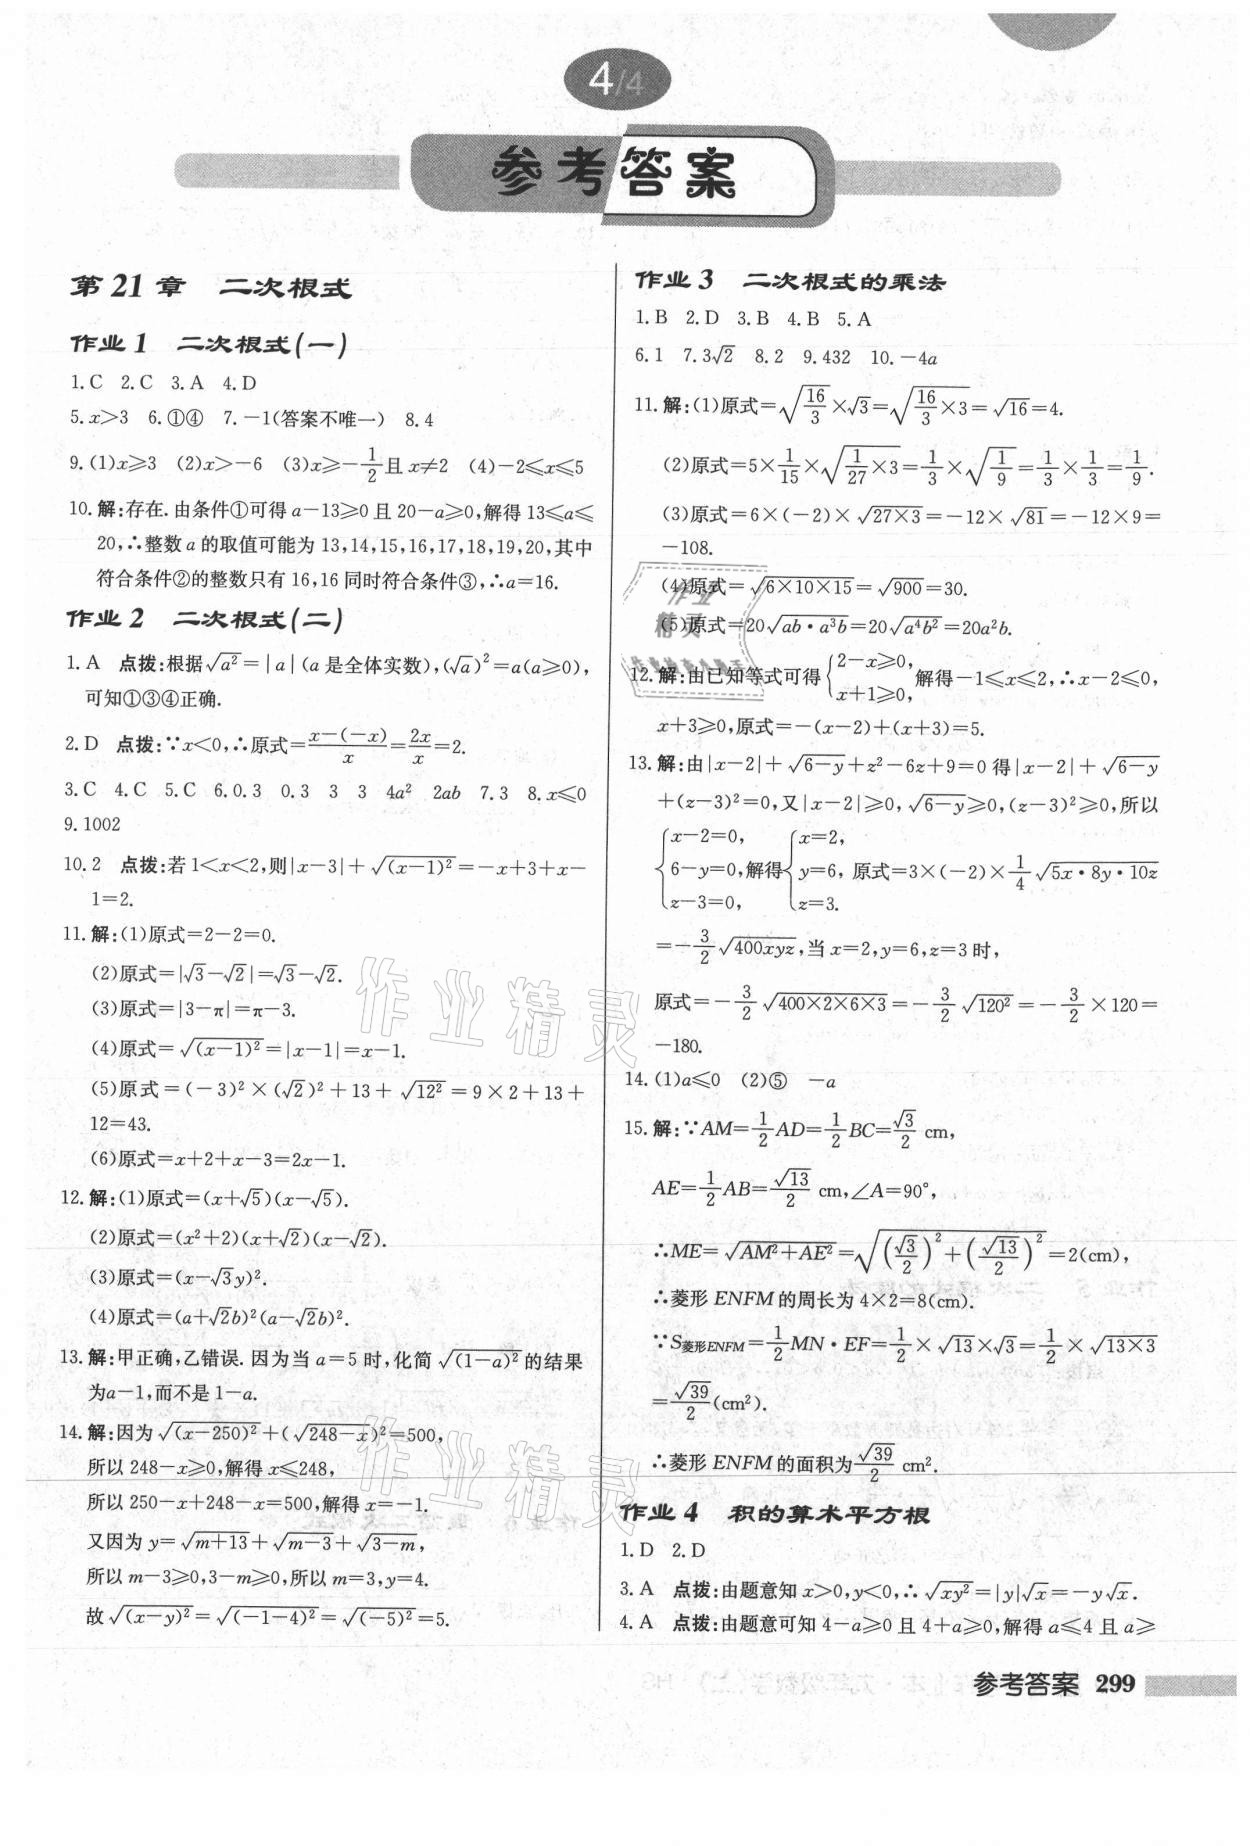 4/4
参考答案
第21章 二次根式
作业1 二次根式(一)
1.C 2.C 3.A 4.D
5.x>3 6.①④ 7.-1(答案不唯一) 8.4
9.(1)x⩾3 (2)x>-6 (3)x⩾-1/2且x≠2 (4)-2⩽x⩽5
10.解:存在.由条件①可得a-13⩾0且20-a⩾0,解得13⩽a⩽
20,∴整数a的取值可能为13,14,15,16,17,18,19,20,其中
符合条件②的整数只有16,16同时符合条件③,∴a=16.
作业2 二次根式(二)
1.A 点拨:根据√(a²)=|a|(a是全体实数),(√a)²=a(a⩾0),
可知①③④正确.
2.D 点拨:∵x<0,∴原式=(x-(-x))/x=2x/x=2.
3.C 4.C 5.C 6.0.3 0.3 3 3 4a² 2ab 7.3 8.x⩽0
9.1002
10.2 点拨:若1<x<2,则|x-3|+√((x-1)²)=-x+3+x-
1=2.
11.解:(1)原式=2-2=0.
(2)原式=|√3-√2|=√3-√2.
(3)原式=|3-π|=π-3.
(4)原式=√((x-1)²)=|x-1|=x-1.
(5)原式=(-3)²×(√2)²+13+√(12²)=9×2+13+
12=43.
(6)原式=x+2+x-3=2x-1.
12.解:(1)原式=(x+√5)(x-√5).
(2)原式=(x²+2)(x+√2)(x-√2).
(3)原式=(x-√3y)².
(4)原式=(a+√2b)²(a-√2b)².
13.解:甲正确,乙错误.因为当a=5时,化简√((1-a)²)的结果
为a-1,而不是1-a.
14.解:因为√((x-250)²)+(√(248-x))²=500,
所以248-x⩾0,解得x⩽248,
所以250-x+248-x=500,解得x=-1.
又因为y=√(m+13)+√(m-3)+√(3-m),
所以m-3⩾0,3-m⩾0,所以m=3,y=4.
故√((x-y)²)=√((-1-4)²)=√((-5)²)=5.
作业3 二次根式的乘法
1.B 2.D 3.B 4.B 5.A
6.1 7.3√2 8.2 9.432 10.-4a
11.解:(1)原式=√(16/3)×√3=√(16/3×3)=√16=4.
(2)原式=5×1/15×√(1/27×3)=1/3×√(1/9)=1/3×1/3=1/9.
(3)原式=6×(-2)×√(27×3)=-12×√81=-12×9=
-108.
(4)原式=√(6×10×15)=√900=30.
(5)原式=20√(ab·a³b)=20√(a⁴b²)=20a²b.
12.解:由已知等式可得{2-x⩾0, x+1⩾0, 解得-1⩽x⩽2,∴x-2⩽0,
x+3⩾0,原式=-(x-2)+(x+3)=5.
13.解:由|x-2|+√(6-y)+z²-6z+9=0得|x-2|+√(6-y)
+(z-3)²=0,又|x-2|⩾0,√(6-y)⩾0,(z-3)²⩾0,所以
{x-2=0, 6-y=0, z-3=0, 解得{x=2, y=6, z=3. 原式=3×(-2)×1/4√(5x·8y·10z)
=-3/2√(400xyz),当x=2,y=6,z=3时,
原式=-3/2√(400×2×6×3)=-3/2√(120²)=-3/2×120=
-180.
14.(1)a⩽0 (2)⑤ -a
15.解:∵AM=1/2AD=1/2BC=√3/2 cm,
AE=1/2AB=√13/2 cm,∠A=90°,
∴ME=√(AM²+AE²)=√((√3/2)²+(√13/2)²)=2(cm),
∴菱形ENFM的周长为4×2=8(cm).
∵S菱形ENFM=1/2MN·EF=1/2×√13×√3=1/2×√(13×3)
=√39/2(cm²).
∴菱形ENFM的面积为√39/2 cm².
作业4 积的算术平方根
1.D 2.D
3.A 点拨:由题意知x>0,y<0,∴√(xy²)=|y|√x=-y√x.
4.A 点拨:由题意可知4-a⩾0且4+a⩾0,解得a⩽4且a⩾
参考答案 299
作业精灵
作业精灵
作业精灵